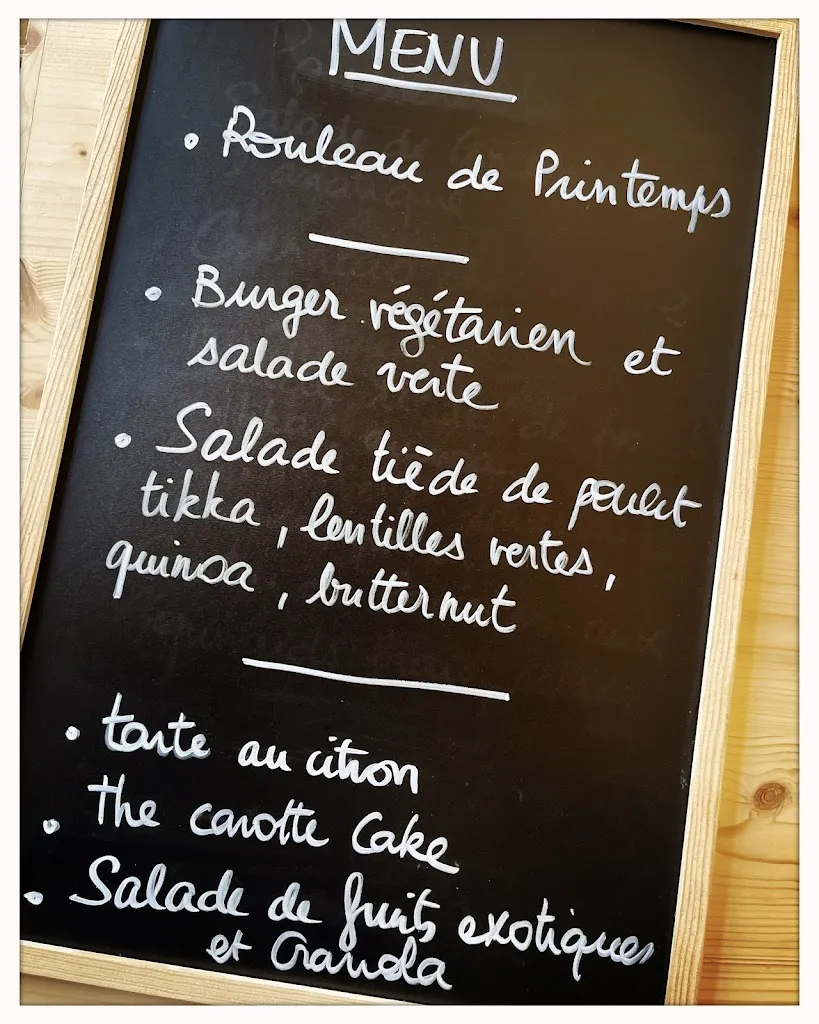 MENU
• Rouleau de Printemps
• Burger végétarien et
salade verte
• Salade tiède de poulet
tikka, lentilles vertes,
quinoa, butternut
• tarte au citron
• The carotte Cake
• Salade de fruits exotiques
et Granola